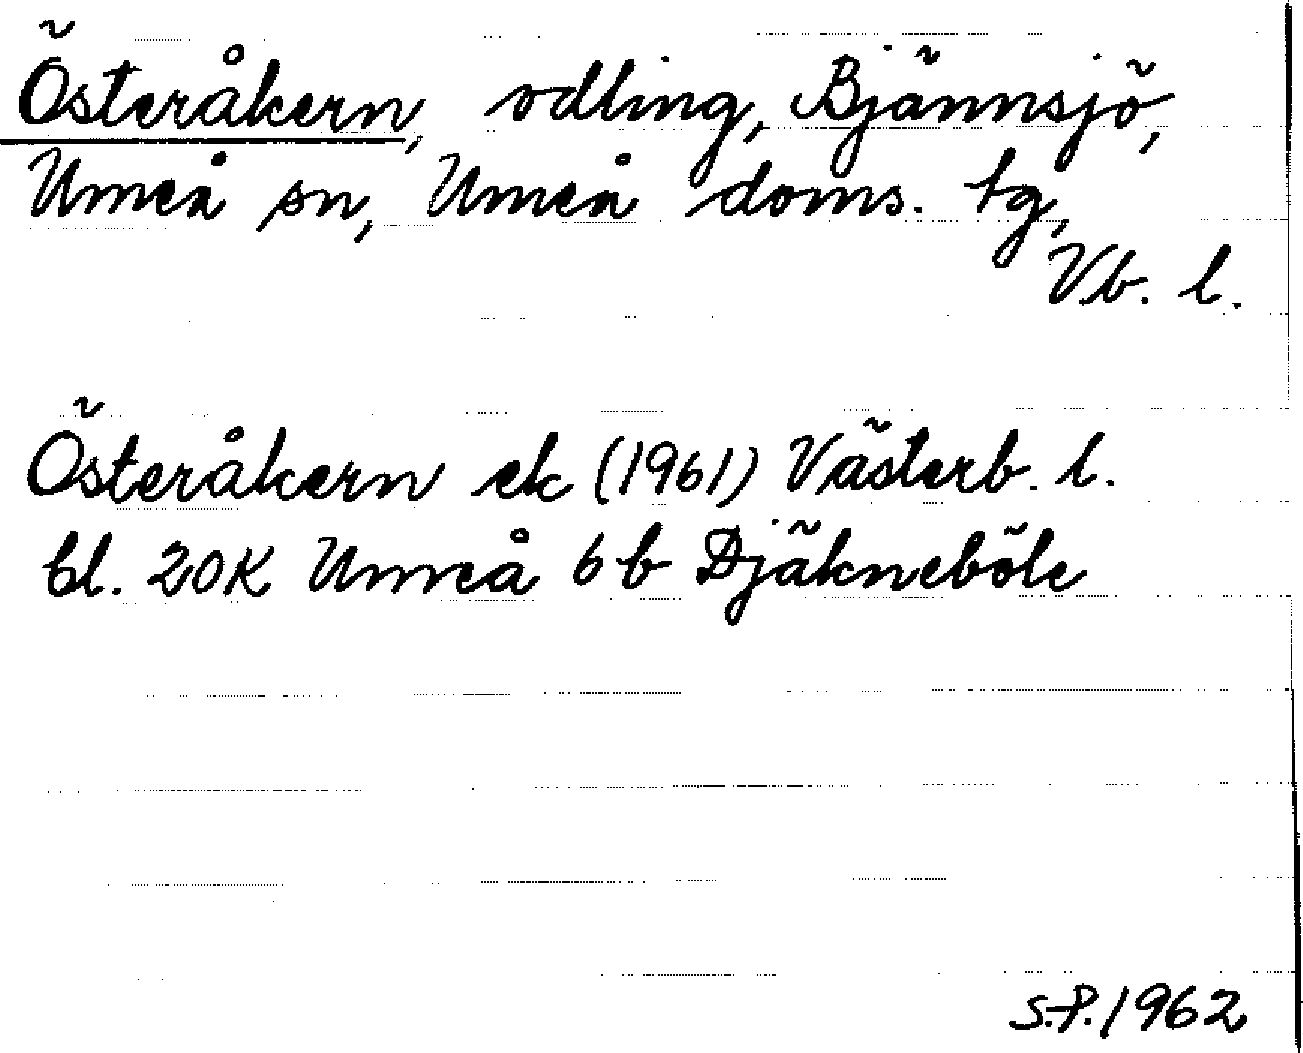 Österåkern, odling, Bjännsjö,
Umeå sn, Umeå doms. tg,
Vb. l.
Österåkern ek (1961) Västerb. l.
bl. 20K Umeå 6b Djäkneböle
S.P. 1962